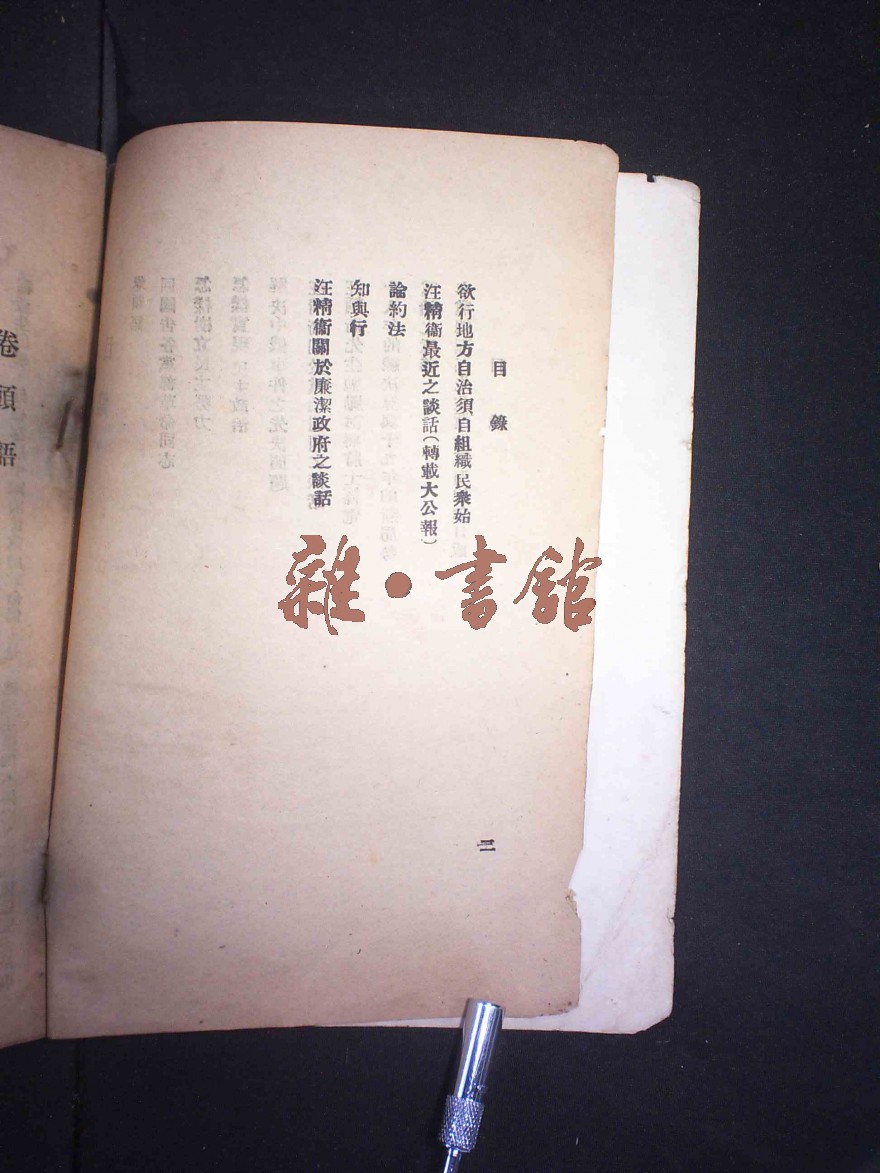 目錄
欲行地方自治須自組織民衆始
汪精衞最近之談話(轉載大公報)
論約法
知與行
汪精衞關於廉潔政府之談話
三
卷頭語
雜·書館